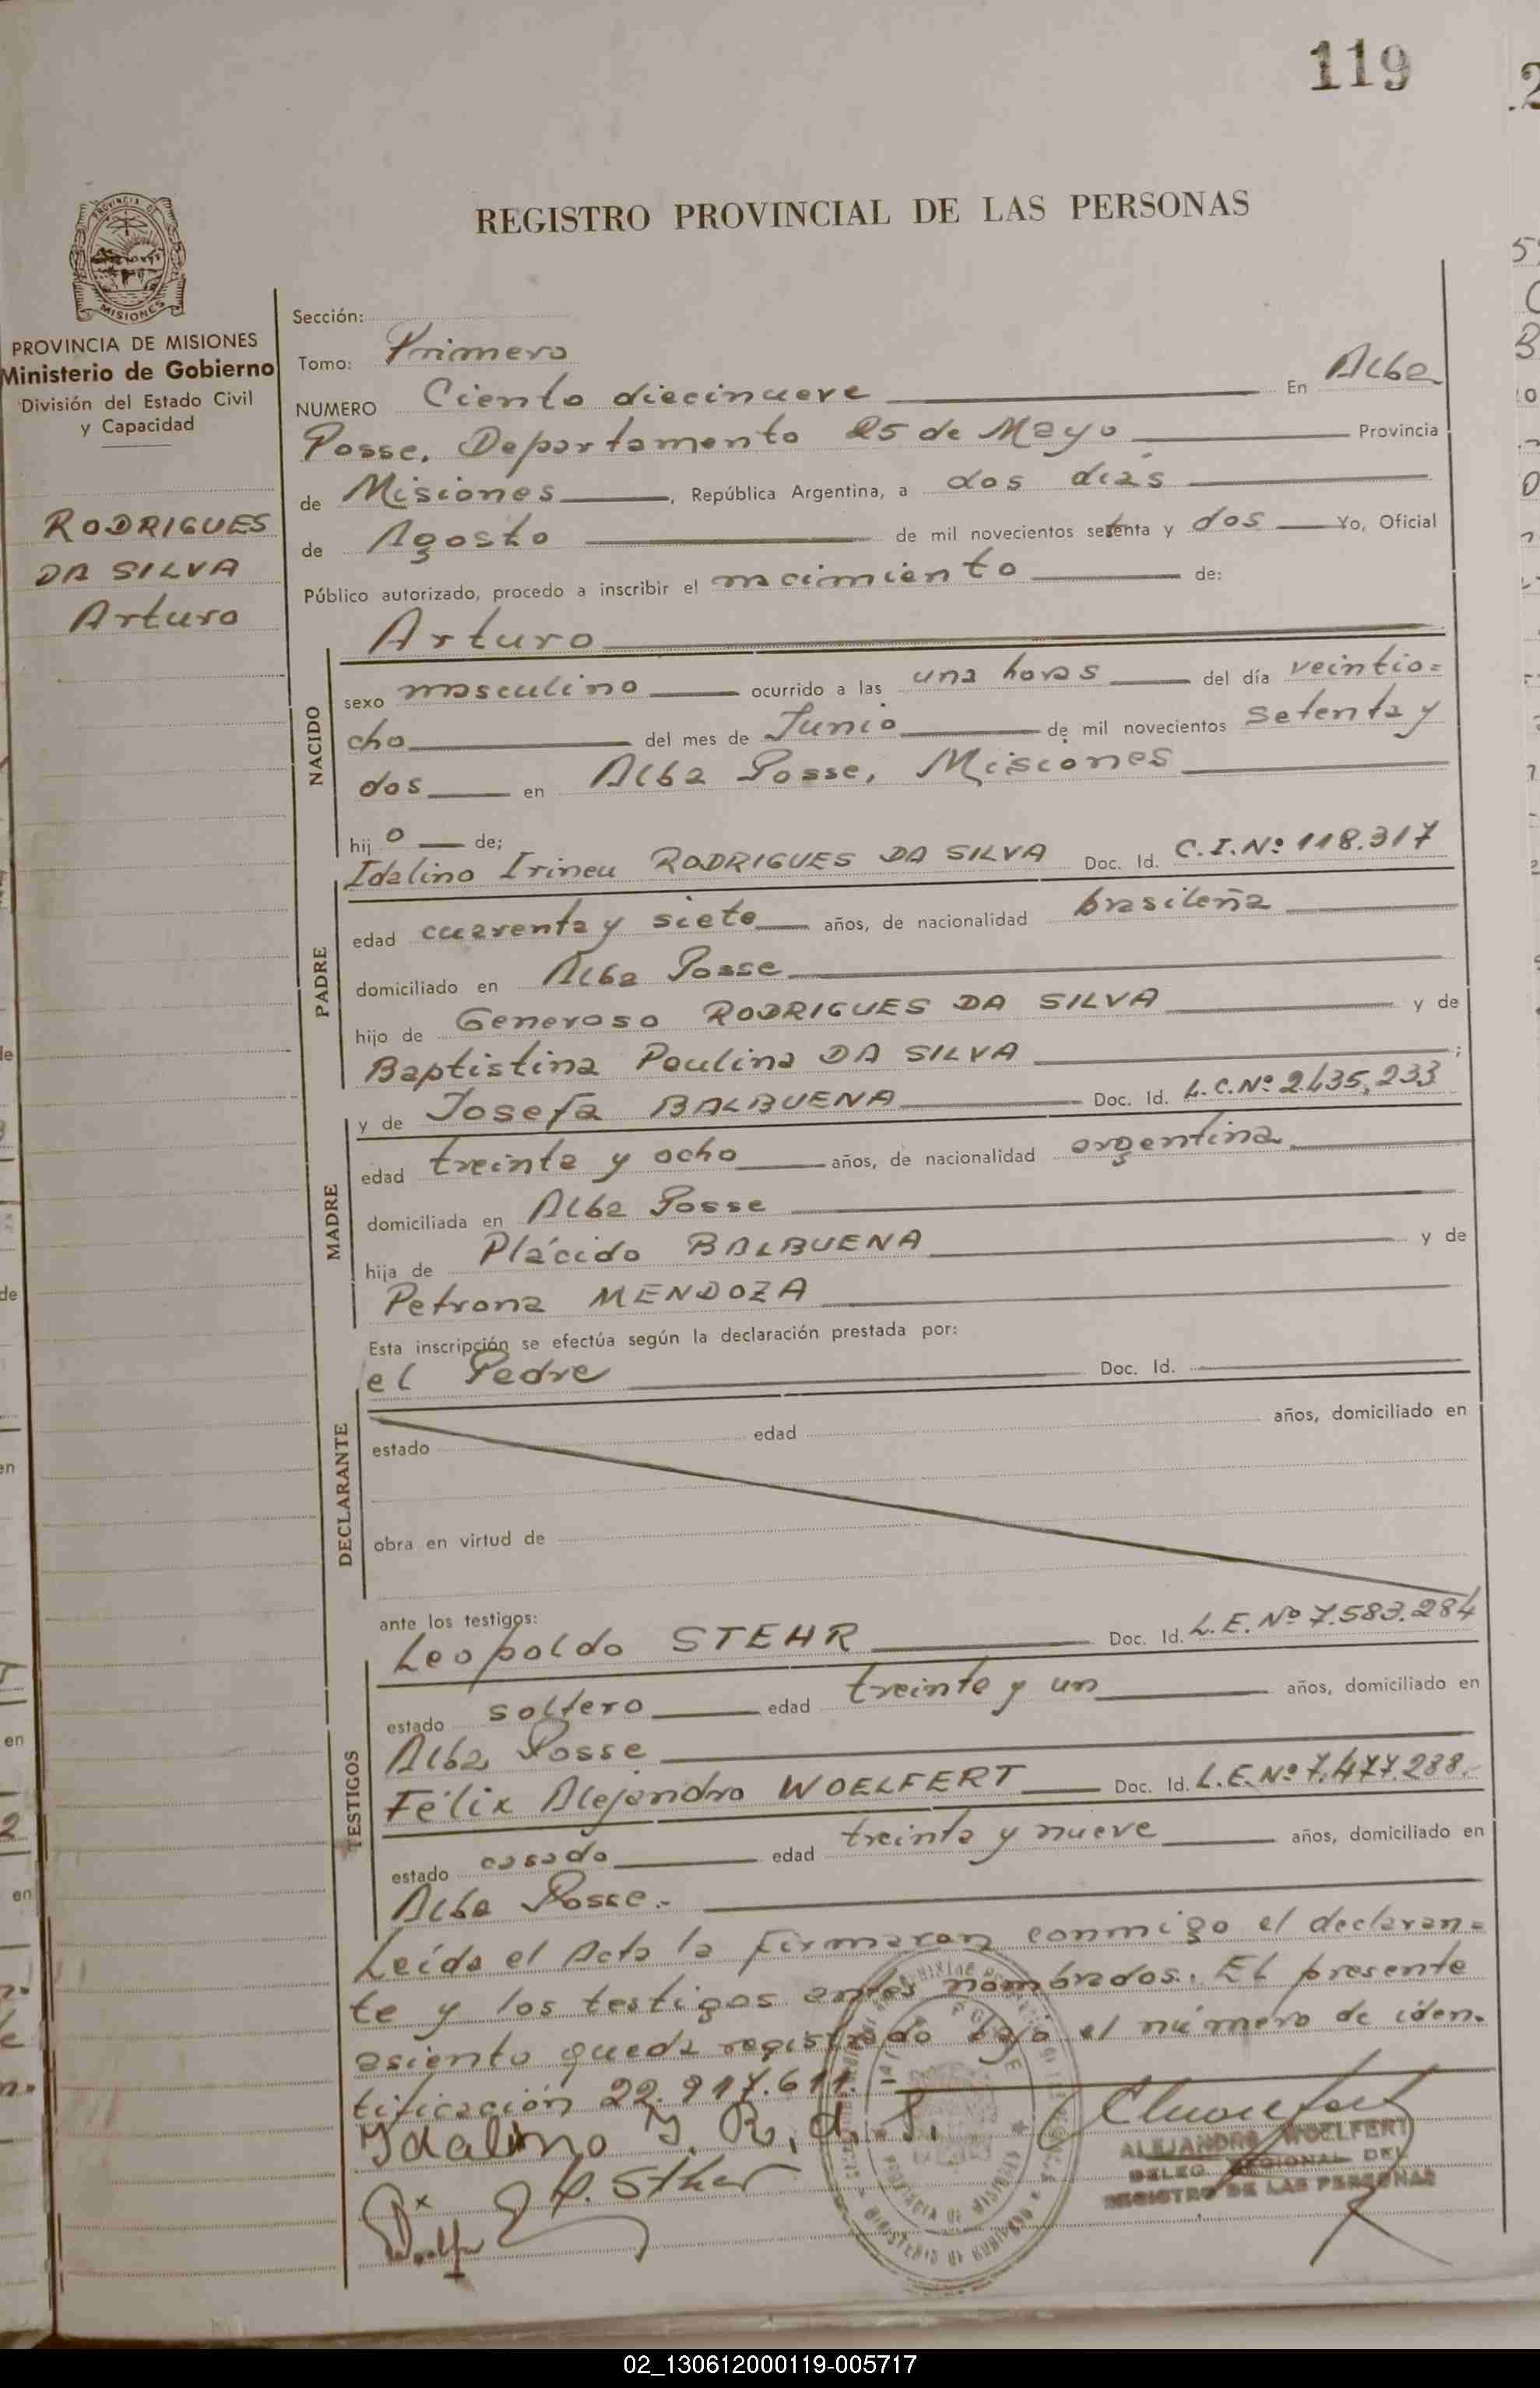 119
REGISTRO PROVINCIAL DE LAS PERSONAS
PROVINCIA DE MISIONES
Ministerio de Gobierno
División del Estado Civil
y Capacidad
RODRIGUES
DA SILVA
Arturo
Sección:
Tomo: Primero
NUMERO Ciento diecinueve En Alba
Posse, Departamento 25 de Mayo Provincia
de Misiones, República Argentina, a dos dias
de Agosto de mil novecientos setenta y dos Yo, Oficial
Público autorizado, procedo a inscribir el nacimiento de:
Arturo
NACIDO
sexo masculino ocurrido a las una horas del día veintio=
cho del mes de Junio de mil novecientos setenta y
dos en Alba Posse, Misiones
hijo de;
Idalino Irineu RODRIGUES DA SILVA Doc. Id. C.I.Nº 118.317
PADRE
edad cuarenta y siete años, de nacionalidad brasileña
domiciliado en Alba Posse
hijo de Generoso RODRIGUES DA SILVA y de
Baptistina Paulina DA SILVA ;
y de Josefa BALBUENA Doc. Id. L.C.Nº 2.435,233
MADRE
edad treinta y ocho años, de nacionalidad argentina
domiciliada en Alba Posse
hija de Plácido BALBUENA y de
Petrona MENDOZA
Esta inscripción se efectúa según la declaración prestada por:
el Padre Doc. Id.
DECLARANTE
estado edad años, domiciliado en
obra en virtud de
ante los testigos:
Leopoldo STEHR Doc. Id. L.E. Nº 7.583.284
TESTIGOS
estado soltero edad treinta y un años, domiciliado en
Alba Posse
Félix Alejandro WOELFERT Doc. Id. L.E.Nº 7.477.288.
estado casado edad treinta y nueve años, domiciliado en
Alba Posse.
Leída el Acta la firmaron conmigo el declaran=
te y los testigos antes nombrados. El presente
asiento queda registrado bajo el número de iden.
tificación 22.917.611.-
Idalino I. R. d. S.
ALEJANDRO WOELFERT
DELEG. REGIONAL DEL
REGISTRO DE LAS PERSONAS
02_130612000119-005717